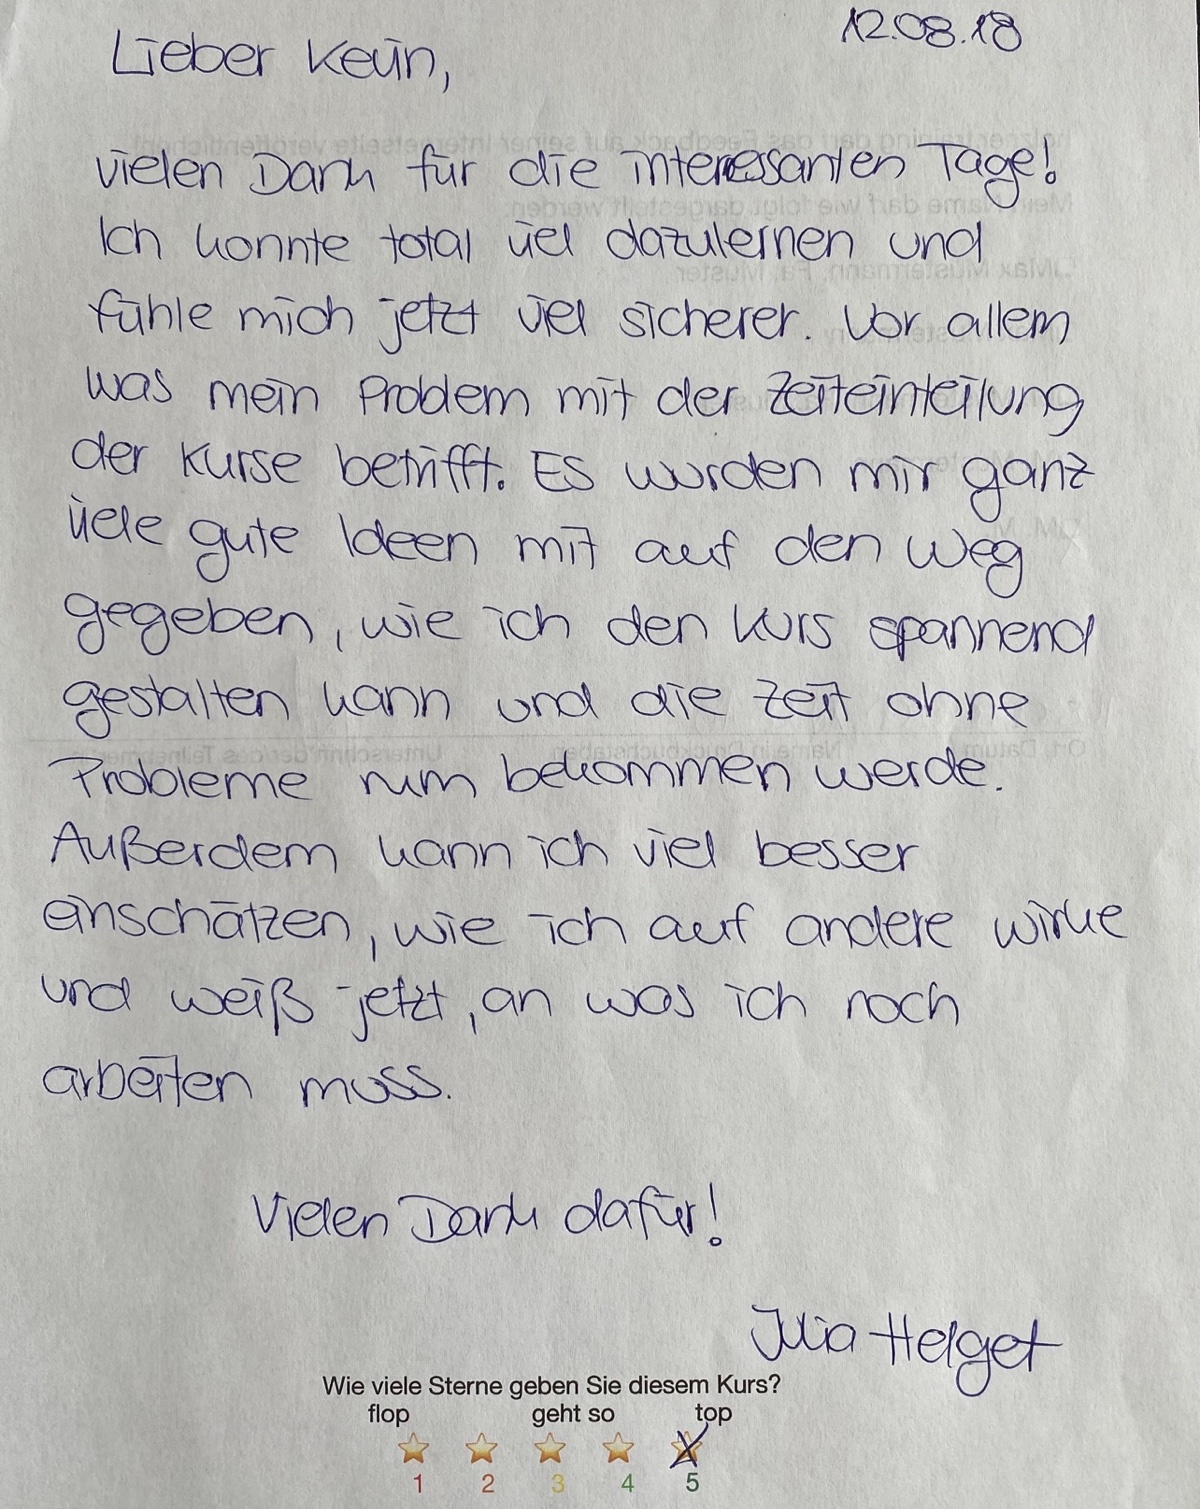 12.08.18
Lieber Kevin,
vielen Dank für die interessanten Tage!
Ich konnte total viel dazulernen und
fühle mich jetzt viel sicherer. Vor allem
was mein Problem mit der Zeiteinteilung
der Kurse betrifft. Es wurden mir ganz
viele gute Ideen mit auf den Weg
gegeben, wie ich den Kurs spannend
gestalten kann und die Zeit ohne
Probleme rum bekommen werde.
Außerdem kann ich viel besser
einschätzen, wie ich auf andere wirke
und weiß jetzt, an was ich noch
arbeiten muss.
Vielen Dank dafür!
Julia Helget
Wie viele Sterne geben Sie diesem Kurs?
flop geht so top
1 2 3 4 5